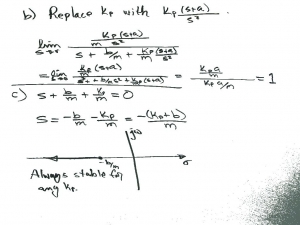 b) Replace Kp with Kp (s+a)/s²
lim s→0 (Kp/m (s+a)/s²) / (s + b/m + Kp/m (s+a)/s²)
= lim s→0 (Kp/m (s+a)) / (s³ + b/m s² + Kp/m (s+a)) = (Kp a/m) / (Kp a/m) = 1
c) s + b/m + Kp/m = 0
s = -b/m - Kp/m = -(Kp+b)/m
jω
-b/m
σ
Always stable for
any Kp.